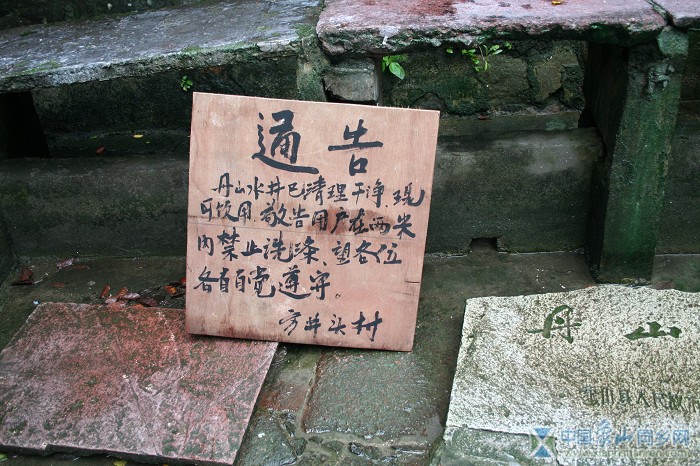 通告
丹山水井已清理干净.现
可饮用.敬告用户在两米
内禁止洗涤、望各位
各自自觉遵守。
方井头村
丹山
象山县人民政
中国象山同乡网